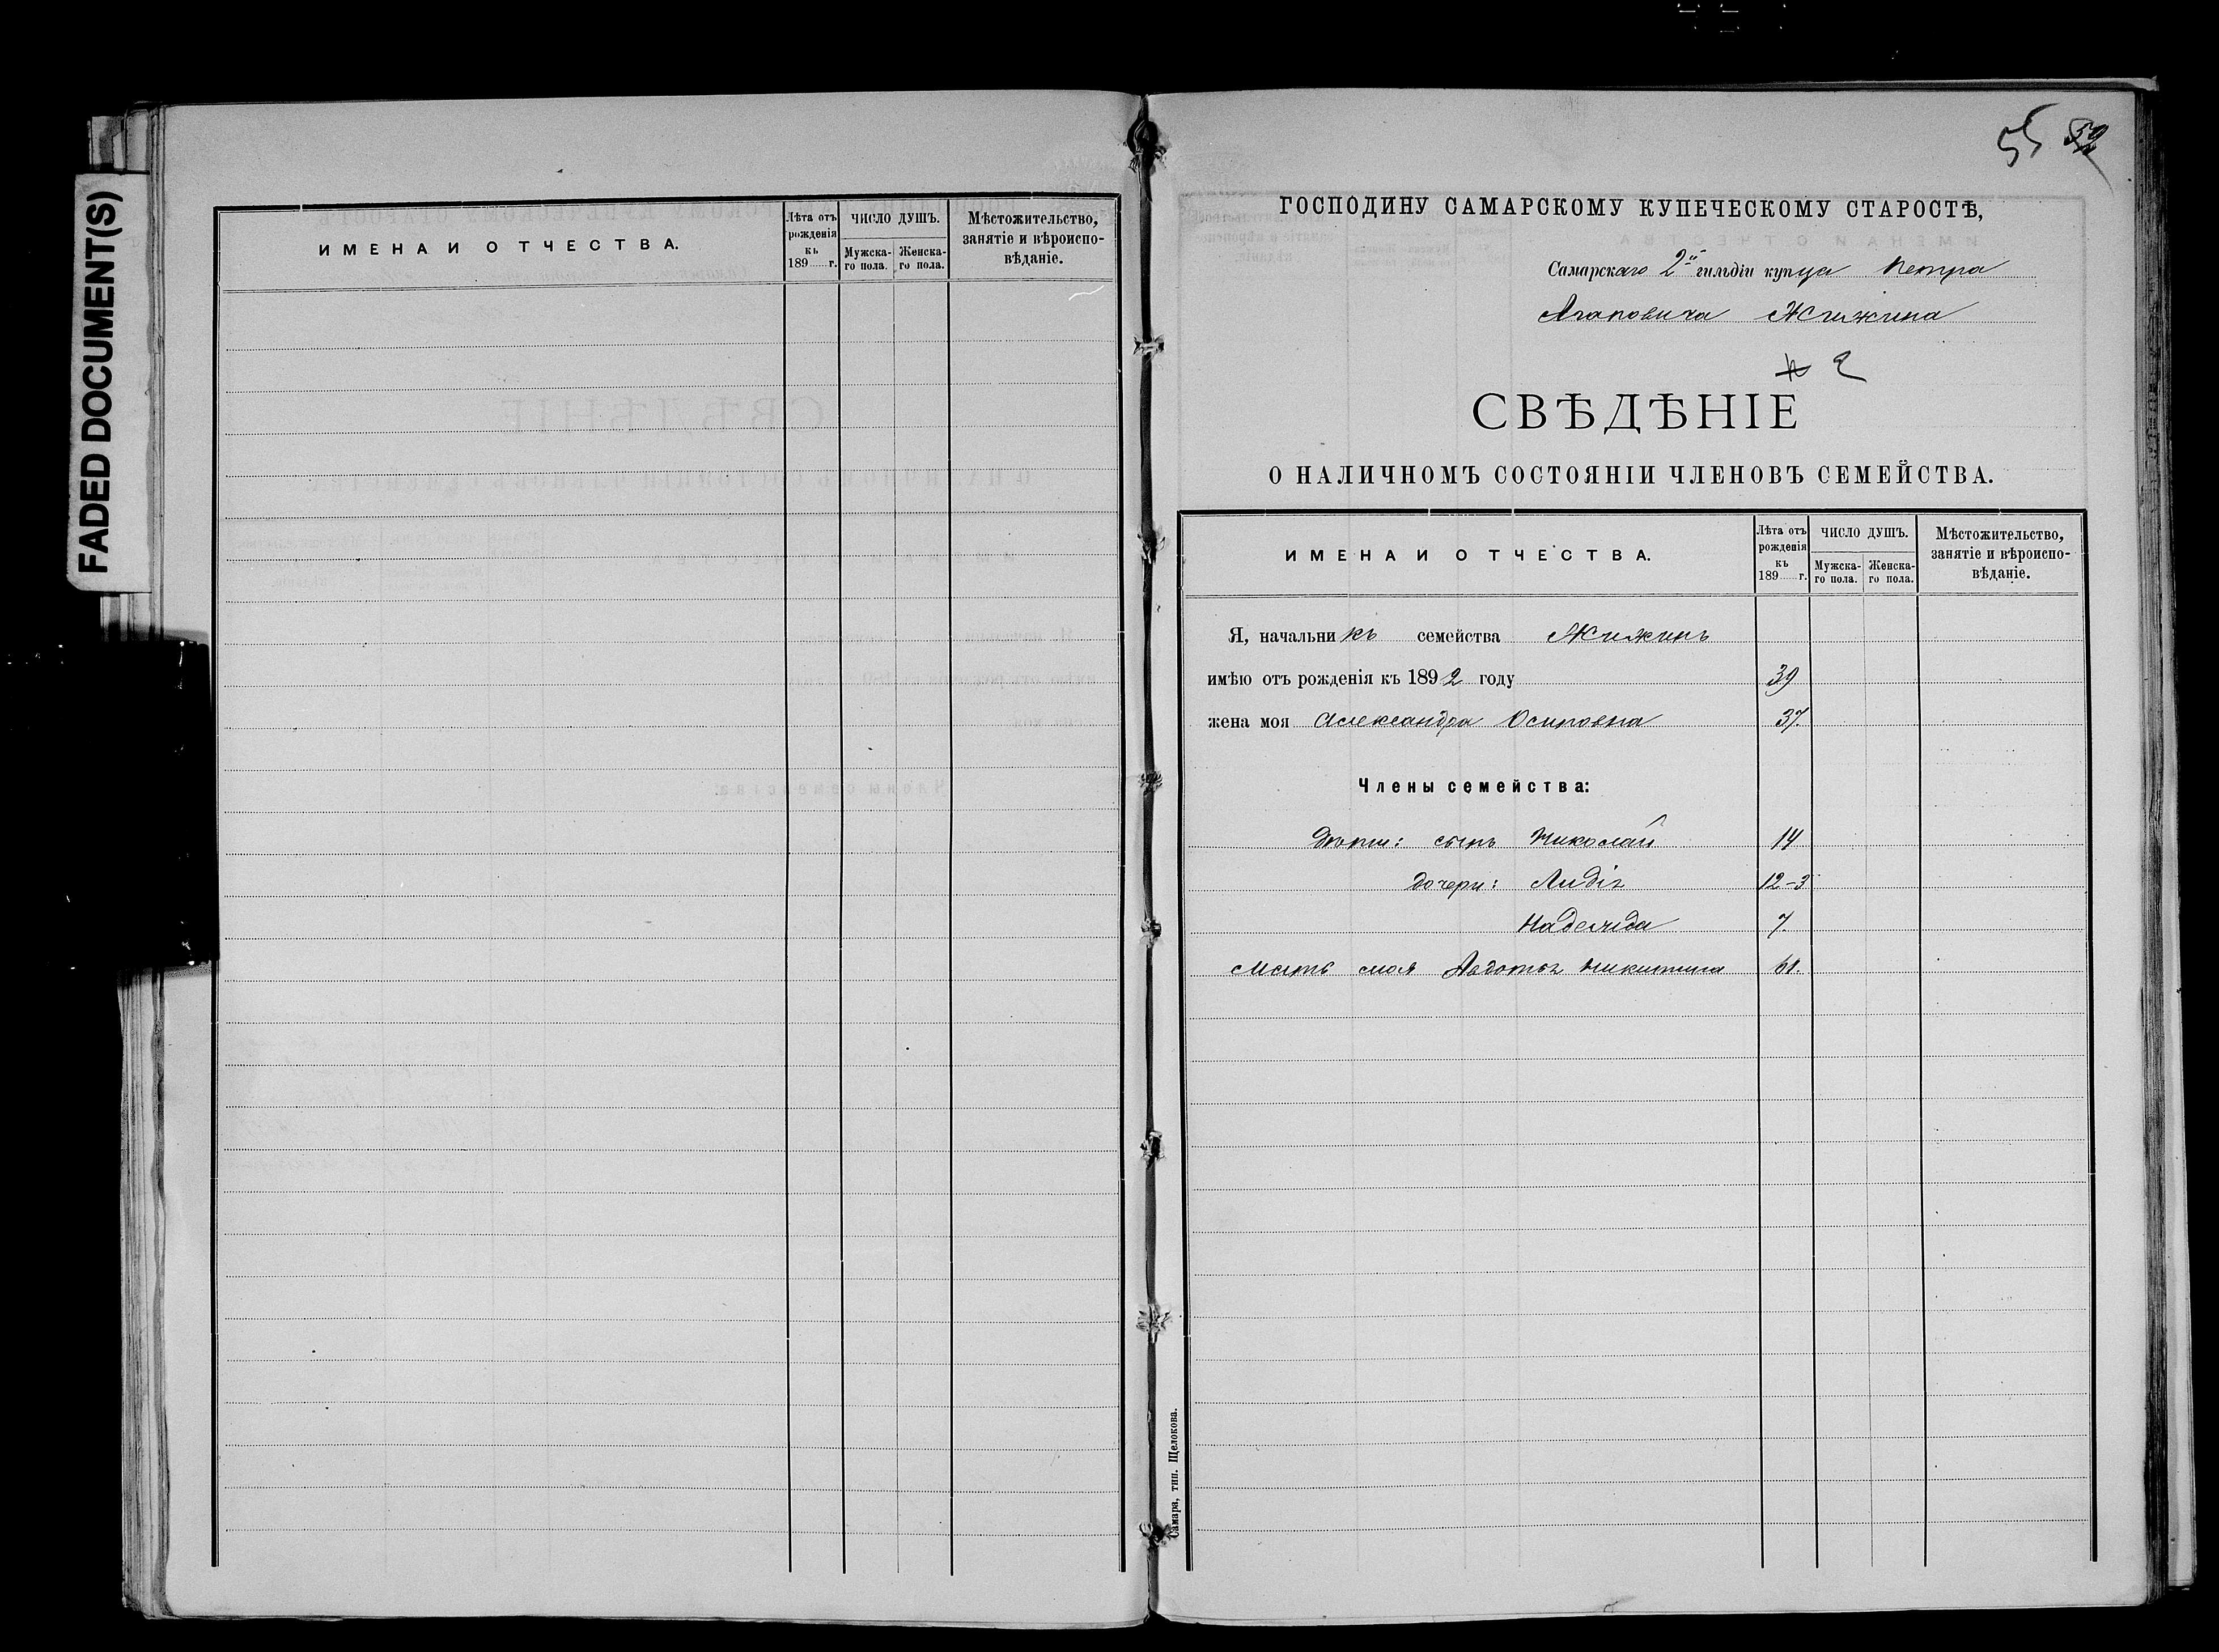 FADED DOCUMENT(S)
ИМЕНА И ОТЧЕСТВА.
Лѣта отъ рожденія къ 189 г.
ЧИСЛО ДУШЪ.
Мужска-го пола.
Женска-го пола.
Мѣстожительство, занятіе и вѣроиспо-вѣданіе.
55 52
ГОСПОДИНУ САМАРСКОМУ КУПЕЧЕСКОМУ СТАРОСТѢ,
Самарскаго 2й гильдіи купца Петра
Агаповича Жижина
2
СВѢДѢНІЕ
О НАЛИЧНОМЪ СОСТОЯНІИ ЧЛЕНОВЪ СЕМЕЙСТВА.
ИМЕНА И ОТЧЕСТВА.
Лѣта отъ рожденія къ 189 г.
ЧИСЛО ДУШЪ.
Мужска-го пола.
Женска-го пола.
Мѣстожительство, занятіе и вѣроиспо-вѣданіе.
Я, начальникъ семейства Жижинъ
имѣю отъ рожденія къ 1892 году 39
жена моя Александра Осиповна 37.
Члены семейства:
Дѣти: сынъ Николай 14
дочери: Лидія 12-3
Надежда 7.
Мать моя Авдотья Никитина 61.
Самара, тип. Щелокова.